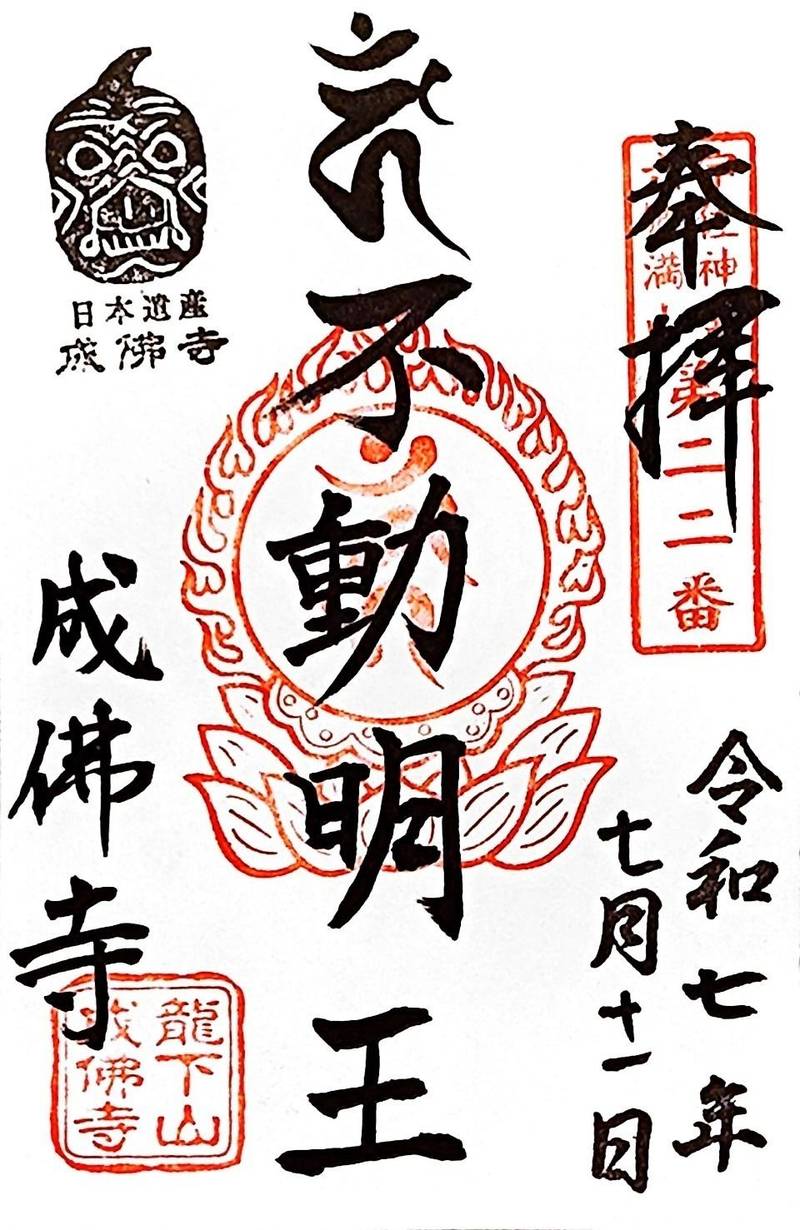 奉拝
神
満
第二二番
令和七年
七月十一日
不動明王
日本遺産
成佛寺
成佛寺
龍下山
成佛寺